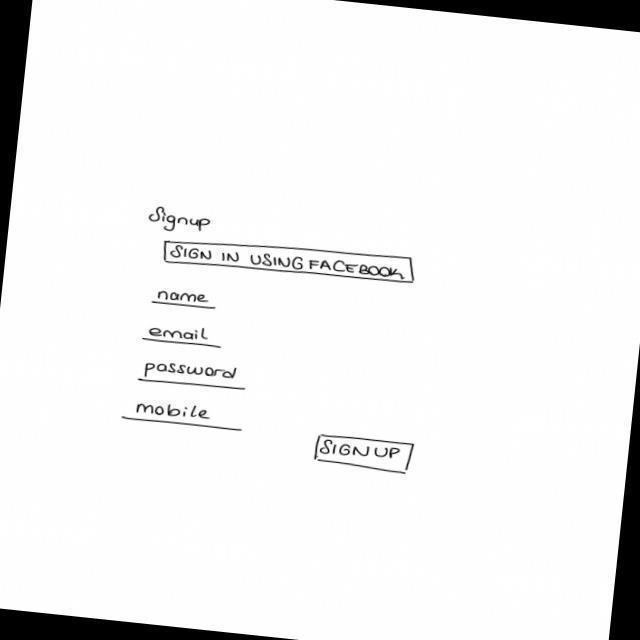 Signup
SIGN IN USING FACEBOOK
name
email
password
mobile
SIGN UP